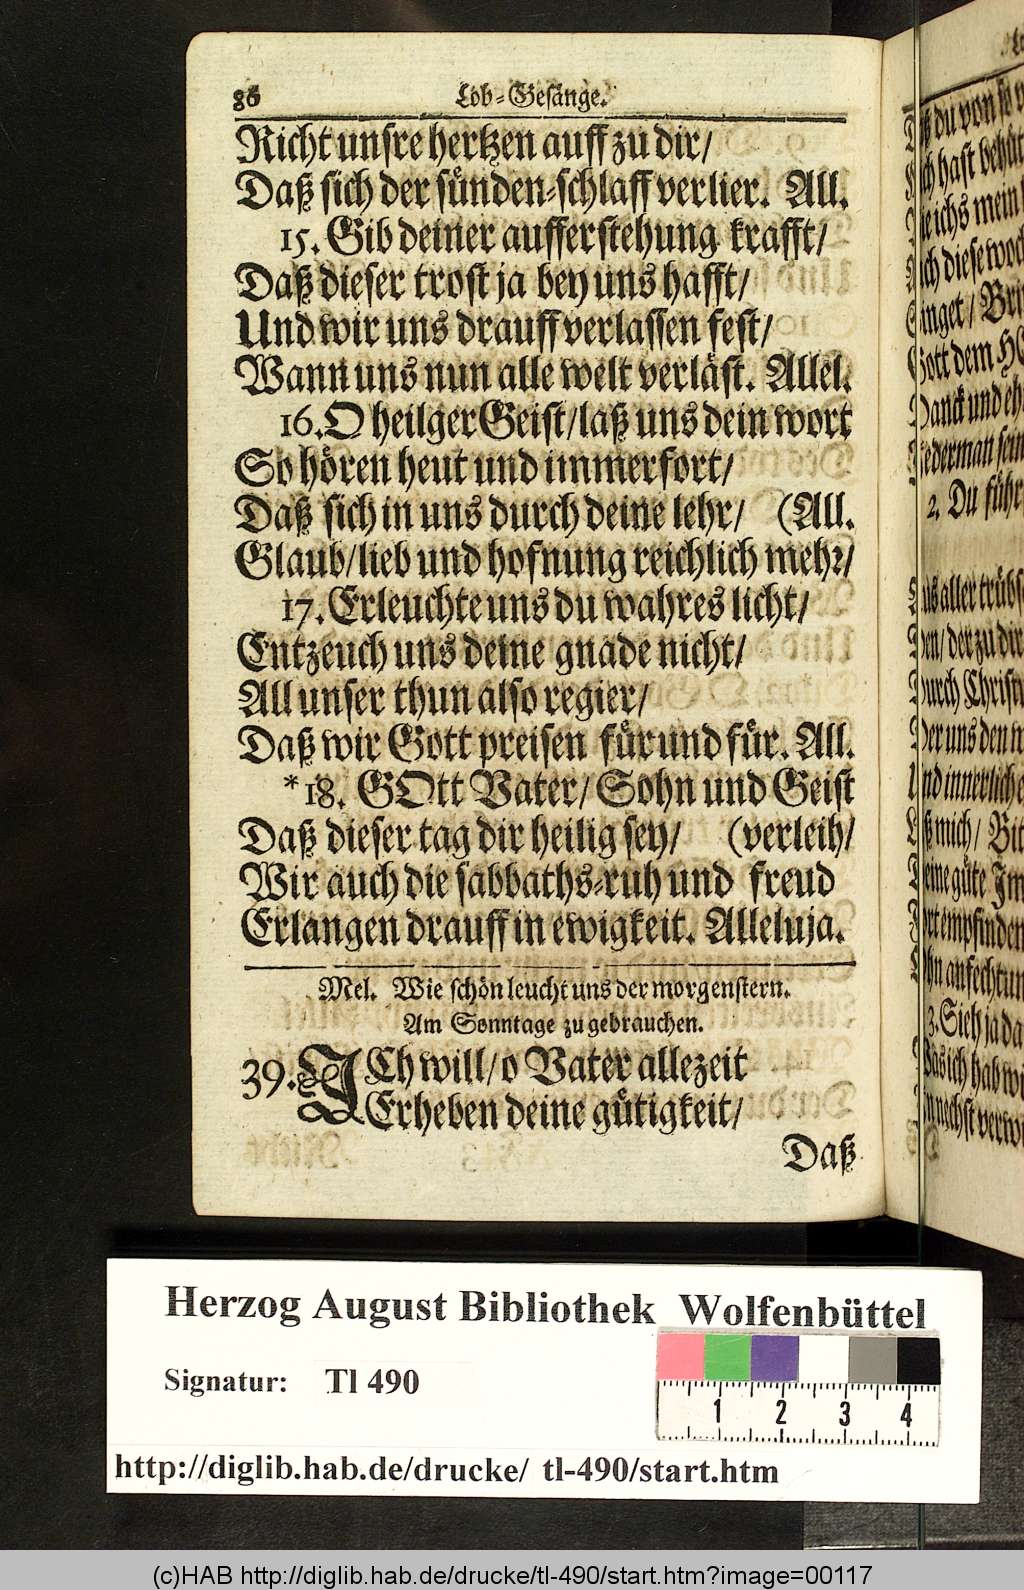 86 Lob-Gesänge.
Richt unsre hertzen auff zu dir/
Daß sich der sünden-schlaff verlier. All.
15. Gib deiner aufferstehung krafft/
Daß dieser trost ja bey uns hafft/
Und wir uns drauff verlassen fest/
Wann uns nun alle welt verläst. Allel.
16. O heilger Geist/ laß uns dein wort
So hören heut und immerfort/
Daß sich in uns durch deine lehr/ (All.
Glaub/ lieb und hofnung reichlich mehr/
17. Erleuchte uns du wahres licht/
Entzeuch uns deine gnade nicht/
All unser thun also regier/
Daß wir Gott preisen für und für. All.
*18. GOtt Vater/ Sohn und Geist
Daß dieser tag dir heilig sey/ (verleih/
Wir auch die sabbaths-ruh und freud
Erlangen drauff in ewigkeit. Alleluja.
Mel. Wie schön leucht uns der morgenstern.
Am Sonntage zu gebrauchen.
39. ICh will/ o Vater allezeit
Erheben deine gütigkeit/
Daß
du von
hast
ichs mein
diese
Gott dem
und
sein
2. Du
aller
der zu dir
Der uns den
mich/
güte
empfinden
3. Sieh ja
ich hab
Herzog August Bibliothek Wolfenbüttel
Signatur: Tl 490
1 2 3 4
http://diglib.hab.de/drucke/ tl-490/start.htm
(c)HAB http://diglib.hab.de/drucke/tl-490/start.htm?image=00117